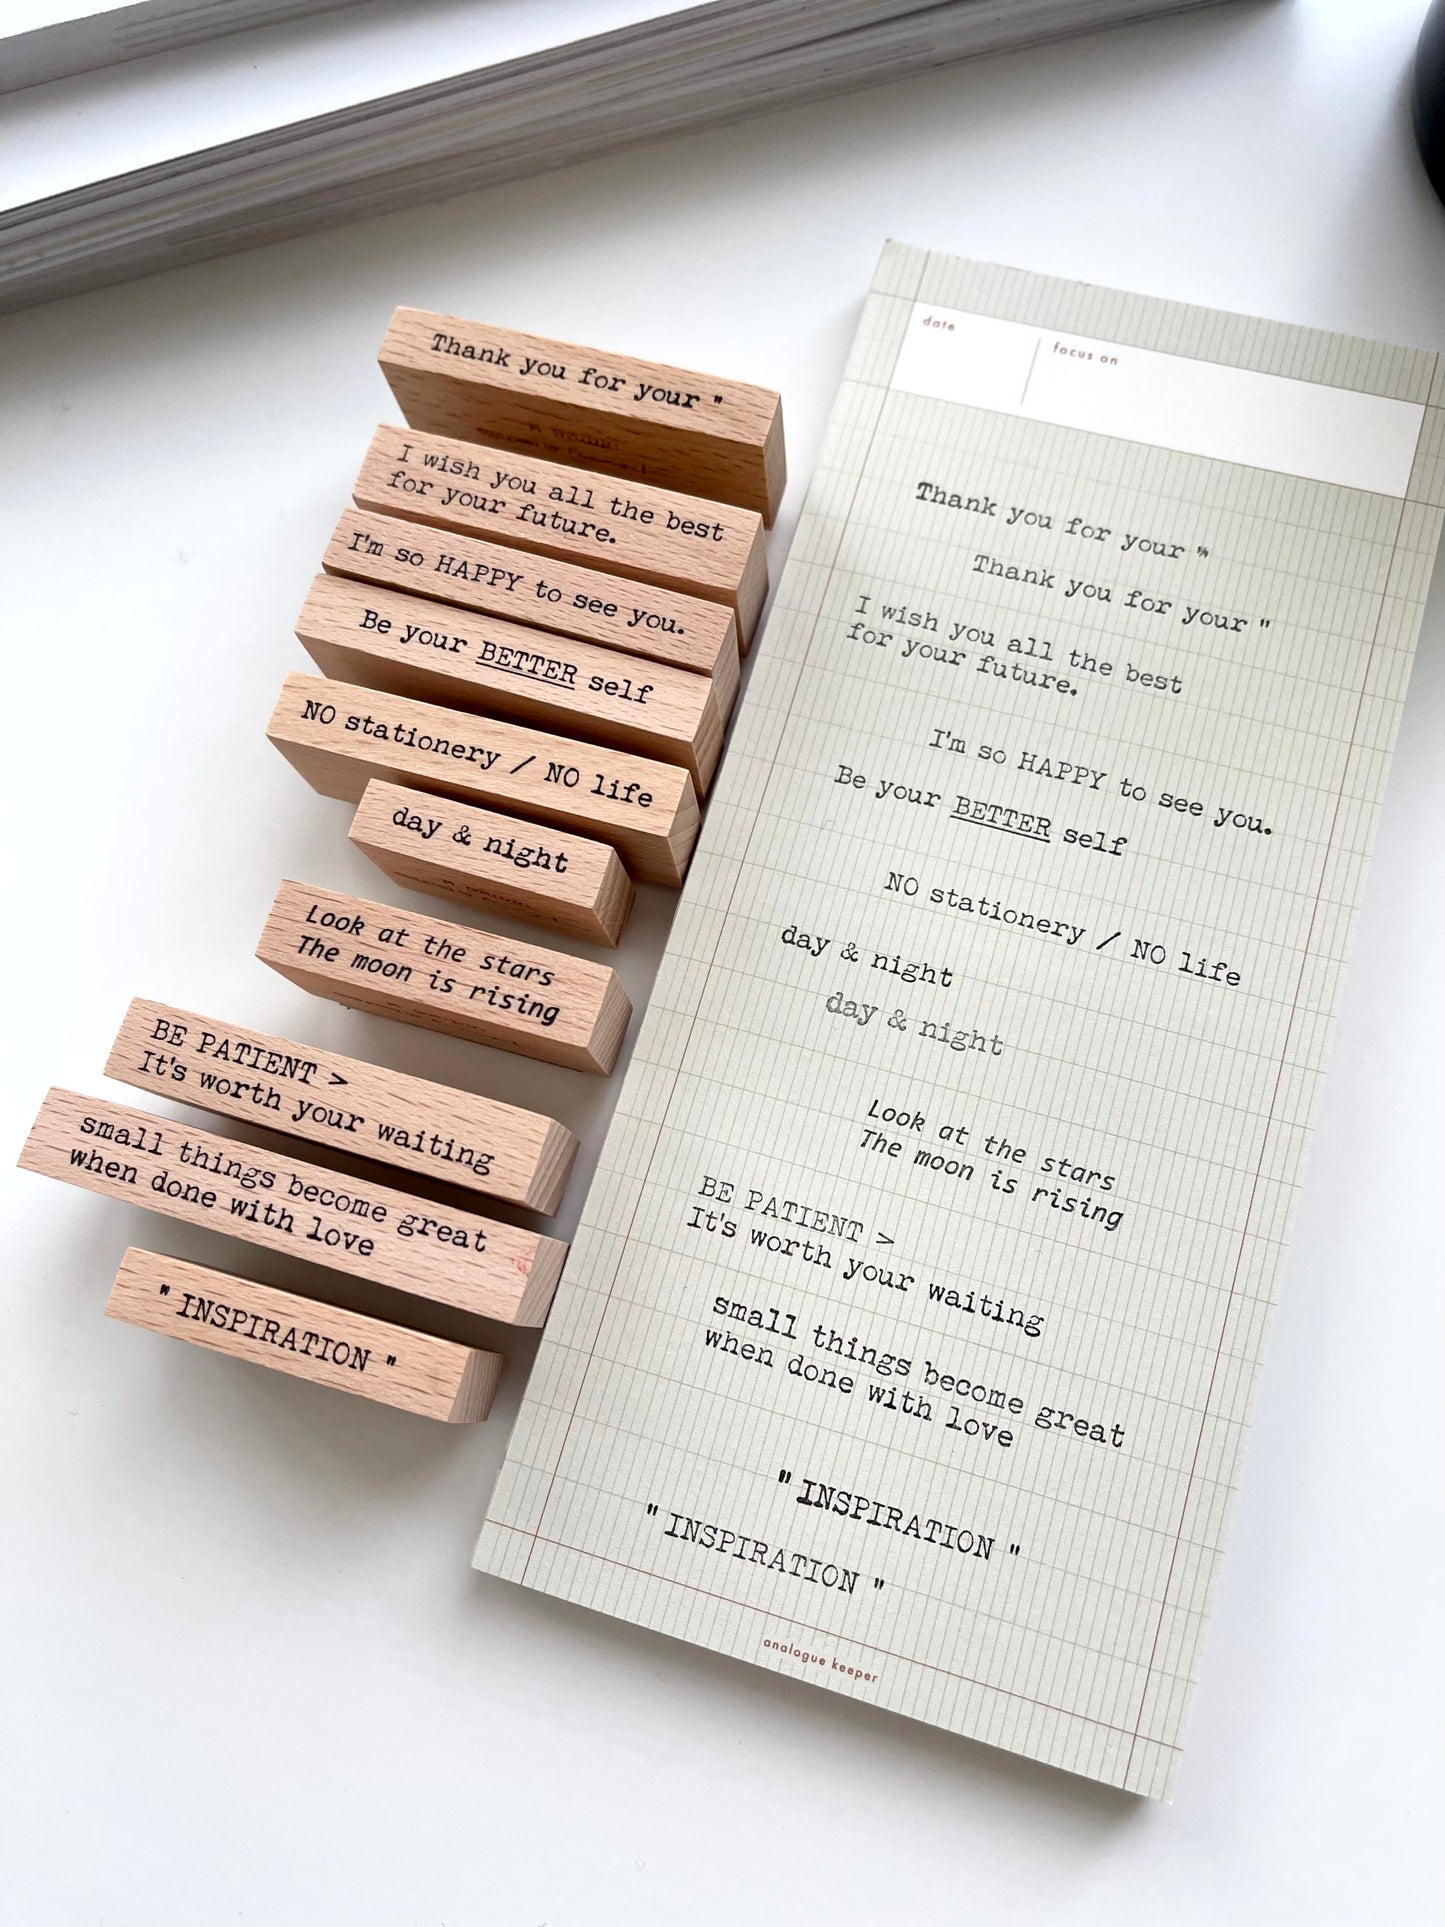 Thank you for your "
I wish you all the best
for your future.
I'm so HAPPY to see you.
Be your BETTER self
NO stationery / NO life
day & night
Look at the stars
The moon is rising
BE PATIENT >
It's worth your waiting
small things become great
when done with love
" INSPIRATION "
date
focus on
Thank you for your "
Thank you for your "
I wish you all the best
for your future.
I'm so HAPPY to see you.
Be your BETTER self
NO stationery / NO life
day & night
day & night
Look at the stars
The moon is rising
BE PATIENT >
It's worth your waiting
small things become great
when done with love
" INSPIRATION "
" INSPIRATION "
analogue keeper